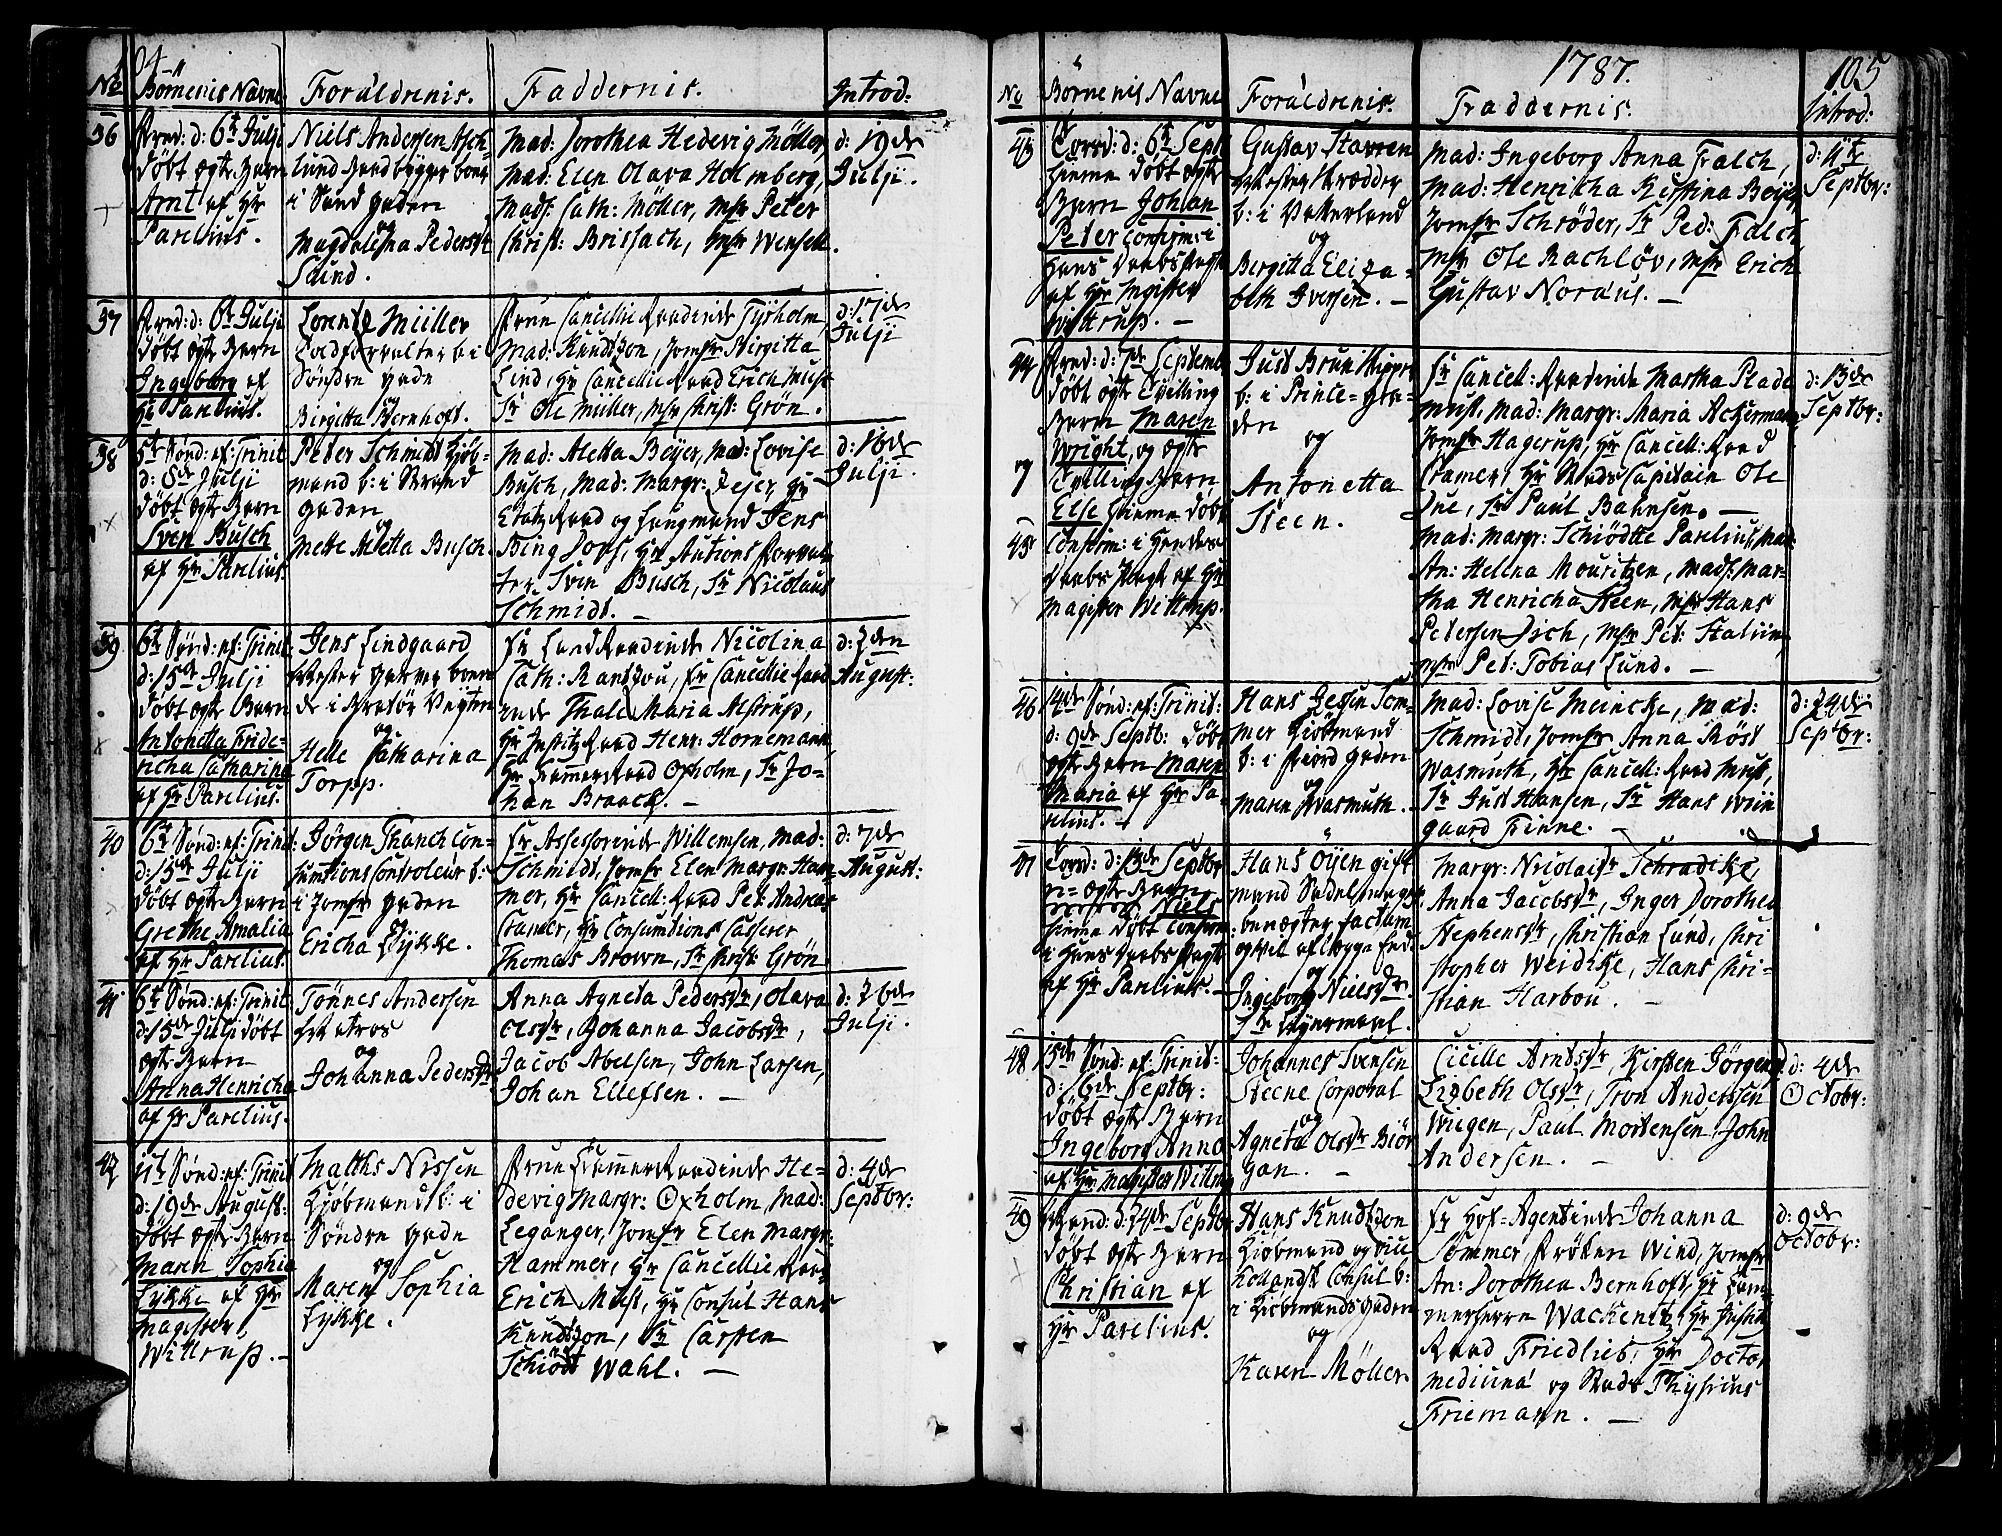 104
No
Børnenis Navne
Forældrenis.
Faddernis.
Introd:
36
Fred: d: 6te Julji
døbt ægte Barn
Arnt af Hr
Parelius.
Niels Andersen Asch-
lund
i Sand gaden
Magdalena Pedersdr
Lund.
Mad: Dorothea Hedevig Møller,
Mad: Elen Olava Holmberg,
Mads: Cath: Möller, Msr Peter
Christ: Brissach, Msr Wensell.
d: 19de
Julji.
37
Fred: d: 6te Julji
døbt ægte Barn
Ingeborg af
Hr Parelius.
Lorentz Müller
Toldforvalter b: i
Søndre gade
og
Birgitta Bernhoft.
Frue Cancellie Raadinde Tyrholm,
Mad: Knudtzon, Jomfr Birgitta
Lind, Hr Cancellie Raad Erich Must
Sr Ole Müller, Msr Christ: Grøn.
d: 17de
Julji
38
5te Sønd: ef: Trinit
d: 8de Julji
døbt ægte Barn
Sven Busch
af Hr Parelius.
Peter Schmidt Kjøb-
mand b: i Strand
gaden
og
Mette Aletta Busch.
Mad: Aletta Beyer, Mad: Lovise
Busch, Mad: Margr: Jejer, Hr
Etatz Raad og Laugmand Jens
Bing Dons, Hr Autions Forval-
ter Sven Busch, Sr Nicolaus
Schmidt. —
d: 16de
Julji
39
6te Sønd: ef: Trinit
d: 15de Julji
døbt ægte Barn
Antonetta Fride-
richa Catharina
af Hr Parelius.
Jens Lindgaard
Mester Garver boen-
de i
og
Helle Catharina
Torpp.
Fr Land Raadinde Nicolina
Cath: Rantzou, Fr Cancellie Raad
inde Thale Maria Alstrup,
Hr Justitz Raad Henr: Hornemann,
Hr Kammer Raad Oxholm, Sr Jo-
han Braack. —
d: 2den
August:
40
6te Sønd: ef: Trinit:
d: 15de Julji
døbt ægte Barn
Grethe Amalia
af Hr Parelius.
Jørgen Thanch Con-
sumtions Controleur b:
i Jomfr gaden
og
Ericha Lykke.
Fr Assessorinde Willemsen, Mad:
Schmidt, Jomfr Elen Margr: Ham-
mer, Hr Cancell: Raad Pet: Andreas
Cramer, Hr Consumtions Casserer
Thomas Brown, Sr Christ: Grøn
d: 7de
August:
41
6te Sønd: ef: Trinit
d: 15de Julji døbt
ægte Barn
Anna Henricha
af Hr Parelius.
Tönnes Andersen
og
Johanna Pedersdr
Anna Agneta Pedersdr, Olava
Olsdr, Johanna Jacobsdr,
Jacob Abelsen, John Larsen,
Johan Ellefsen. —
d: 26de
Julji.
42
11te Sønd: ef: Trinit
d: 19de August:
døbt ægte Barn
Maren Sophia
Lykke af Hr
Magister
Wittrup. —
Matths Nissen
Kjøbmand b: i
Søndre gade
og
Maren Sophia
Lykke.
Frue Kammer Raadinde He-
devig Margr: Oxholm, Mad:
Leganger, Jomfr Elen Margr:
Hammer, Hr Cancellie Raad
Erich Must, Hr Consul Hans
Knudtzon, Sr Carsten
Schiödt Wahl. —
d: 4de
Septbr:
1787.
105
No
Børnenis Navne
Forældrenis.
Faddernis.
Introd:
43
Torsd: d: 6te Sept
hiemme døbt ægte
Barn Johan
Peter Confirm: i
Hans Daabs Pagt
af Hr Magister
Wittrup. —
Gustav
Mester Skrædder
b: i
og
Bergitta Eliza-
beth Iversen. —
Mad: Ingeborg Anna Falch,
Mad: Henricha Kistina Beyer,
Jomfr Schrøder, Sr Ped: Falch,
Msr Ole Rachløv, Msr Erich
Gustav Noræus. —
d: 11te
Septbr:
44
Fred: d: 7de Septemb
døbt ægte Tvilling
Barn Maren
Wright, og ægte
og
Tvilling Barn
Else hiemme døbt
45
Confirm: i Hendes
Daabs Pagt af Hr
Magister Wittrup.
Just Brun
b: i Prince-ga-
den
og
Antonetta
Steen.
Fr Cancell: Raadinde Martha Plade
Must, Mad: Margr: Maria Ackermann
Jomfr Hagerup, Hr Cancell: Raad
Cramer, Hr Stads Capitain Ole
Due, Sr Paul Bahnsen. —
Mad: Margr: Schiödtte Parelius, Mad:
An: Hellna Mouritzen, Mads: Mar-
tha Henricha Steen, Msr Hans
Petersen Dich, Msr Pet: Stalum
Msr Pet: Tobias Lund. —
d: 13de
Septbr:
46
14de Sønd: ef: Trinit:
d: 9de Septb: døbt
ægte Barn Maren
Maria af Hr Pa-
relius. —
Hans Jessen Som-
mer Kjøbmand
b: i Fiord gaden
og
Maren Wasmuth.
Mad: Lovise Meincke, Mad:
Schmidt, Jomfr Anna Røst
Wasmuth, Hr Cancell: Raad Must,
Sr Just Hansen, Sr Hans Wiin
gaard Finne. —
d: 24de
Septbr:
47
Torsd: d: 13de Septbr
u-ægte Barn
Niels
hiemme døbt Confirm:
i Hans Daabs Pagt
af Hr Parelius. —
Hans Öyen gift
mand Sadelmager
benægter factum
og vil aflægge Eed
og
Ingeborg Nielsdr
Margr: Nicolaisdr Schradike,
Anna Jacobsdr, Inger Dorothea
Stephensdr, Christian Lund, Chri
stopher Weidike, Hans Chri-
stian Harbou. —
48
15de Sønd: ef: Trinit:
d: 16de Septbr:
døbt ægte Barn
Ingeborg Anna
af Hr Magister Wittrup
Johannes Svensen
Steene Corporal
og
Agneta Olsdr Biör
gan. —
Cicille Arntsdr, Kirsten Jörgensd
Lizbeth Olsdr, Tron Anderssen
Wiigen, Paul Mortensen, John
Andersen. —
d: 4de
Octobr:
49
Mand: d: 24de Septbr
døbt ægte Barn
Christian af
Hr Parelius.
Hans Knudtzon
Kjøbmand og
Hollandsk Consul b:
i Kjøbmands gaden
og
Karen Møller
Fr Hof-Agentinde Johanna
Sommer, Frøken Wind, Jomfr
An: Dorothea Bernhoft, Hr Kam-
merherre Wackenitz, Hr Justitz
Raad Friedlieb, Hr Doctor
Medicinæ og Stads Physicus
Friemann. —
d: 9de
Octobr: